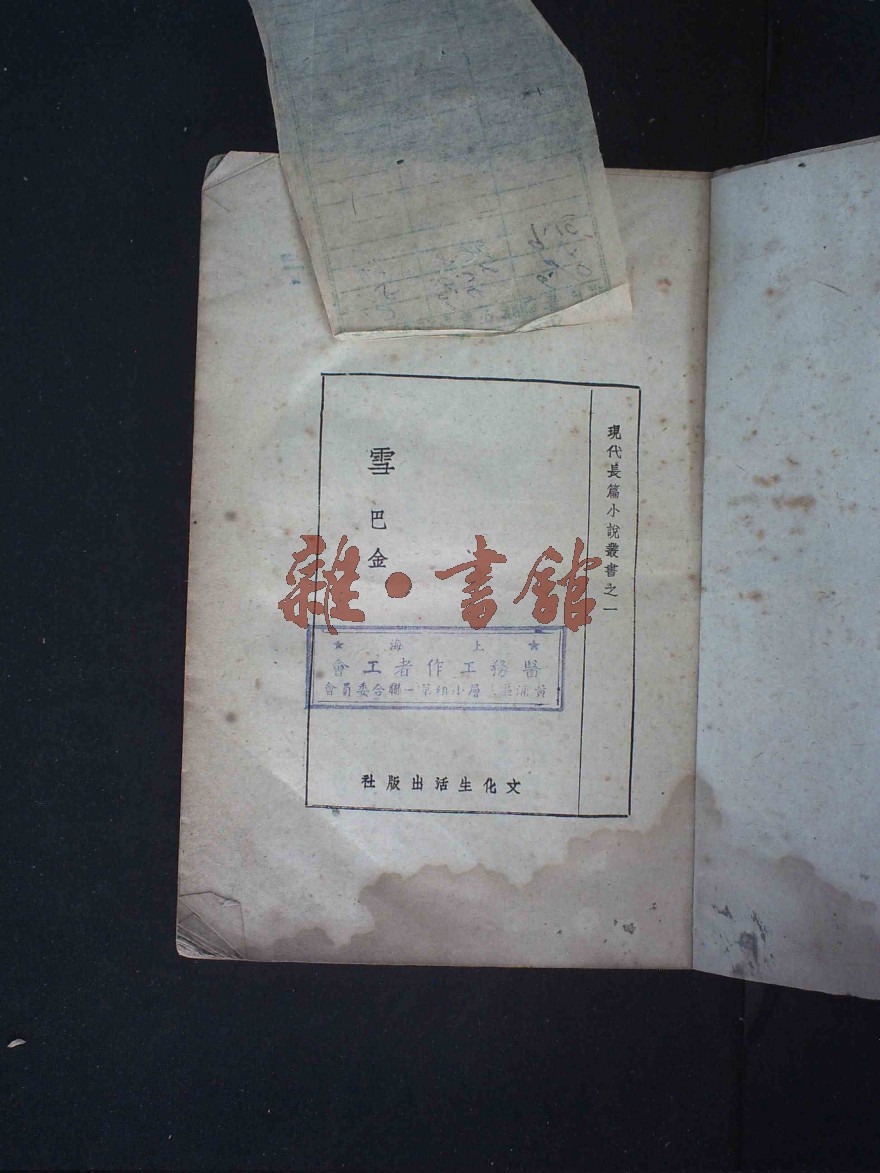 現代長篇小說叢書之一
雪
巴金
雜·書館
★ 上海 ★
醫務工作者工會
第一聯合委員會
文化生活出版社